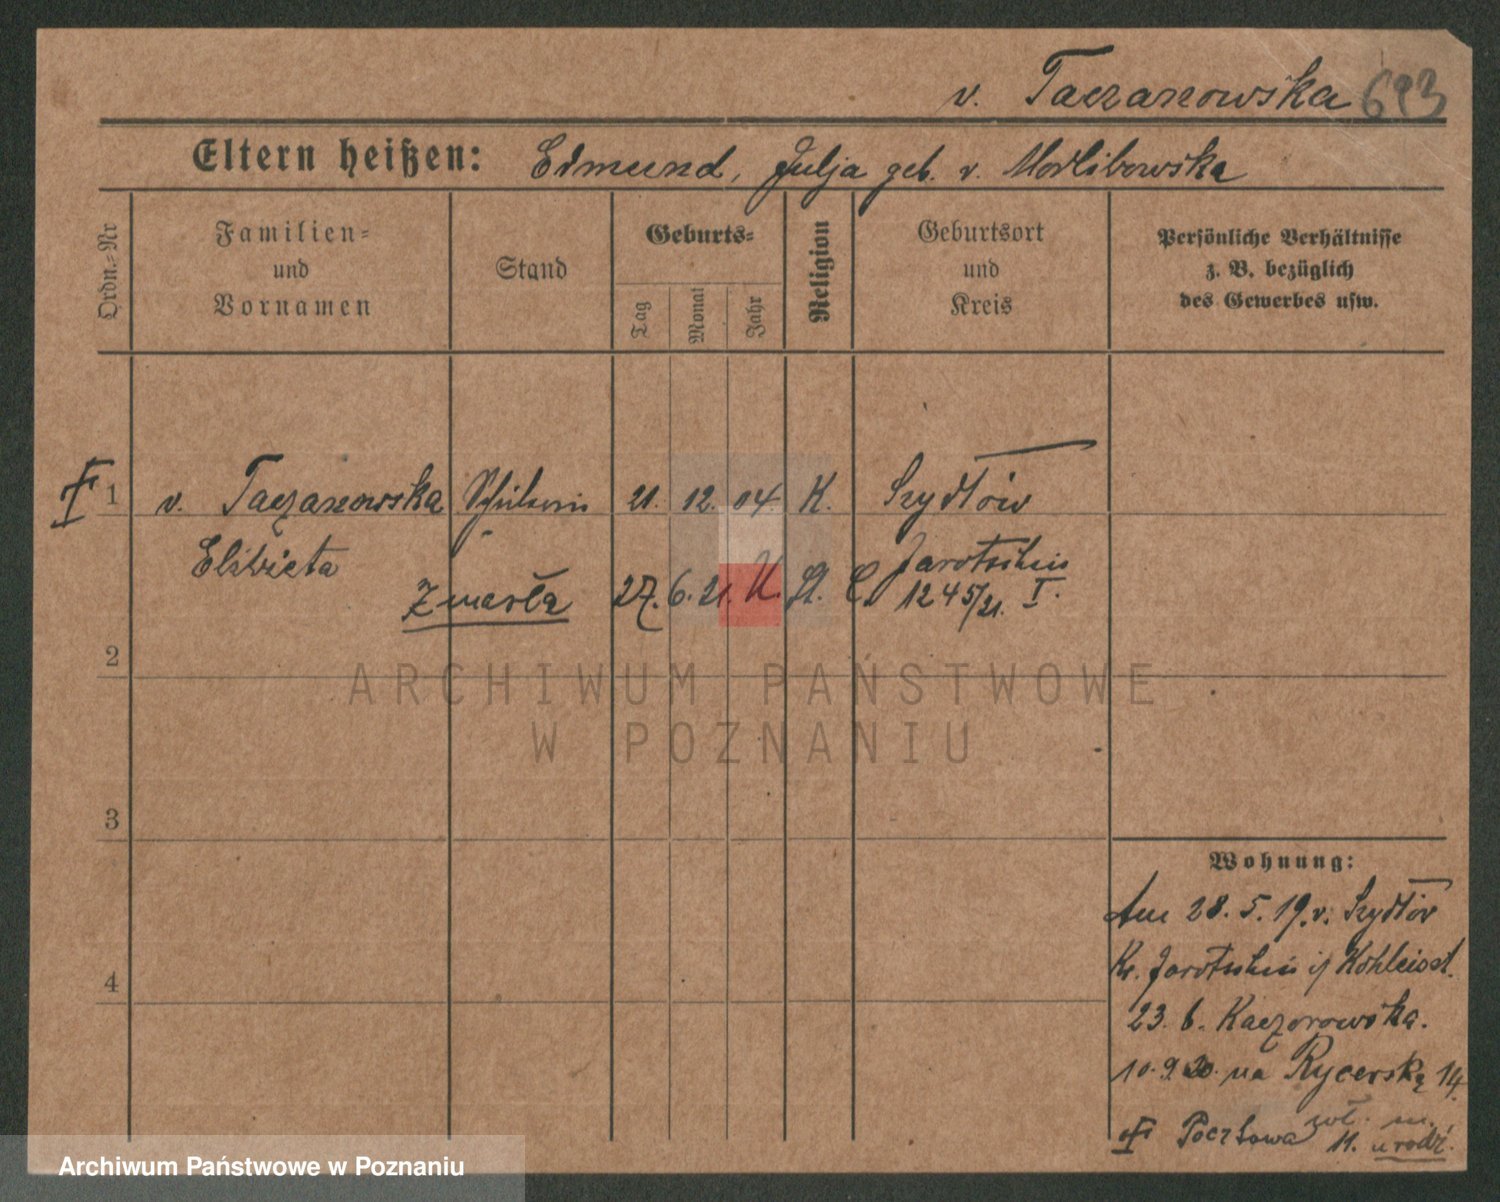 v. Taczanowska 693
Eltern heißen: Edmund, Julja geb. v. Modlibowska
Ordn.-Nr
Familien-
und
Vornamen
Stand
Geburts-
Tag
Monat
Jahr
Religion
Geburtsort
und
Kreis
Persönliche Verhältnisse
z. B. bezüglich
des Gewerbes usw.
1 v. Taczanowska Schülerin 21. 12. 04. K. Szydłów
Elżbieta Jarotschin
Zmarła 27. 6. 21. U. St. C. 1245/21. I.
2
ARCHIWUM PAŃSTWOWE
W POZNANIU
3
4
Wohnung:
Am 28. 5. 19. v. Szydłów
Kr. Jarotschin
23. b. Kaczorowska.
10. 9. 20. na Rycerską 14.
Pocztowa 11. urodz.
Archiwum Państwowe w Poznaniu